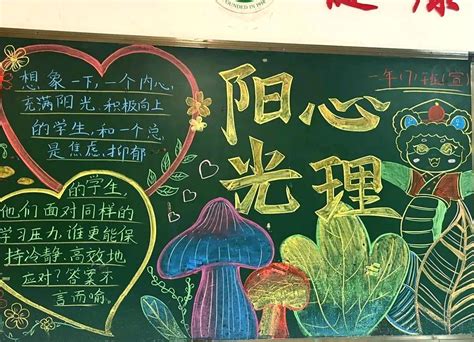 想象一下,一个内心
充满阳光、积极向上
的学生,和一个总
是焦虑、抑郁
的学生,
他们面对同样的
学习压力,谁更能保
持冷静、高效地
应对?答案不
言而喻。
阳光
心理